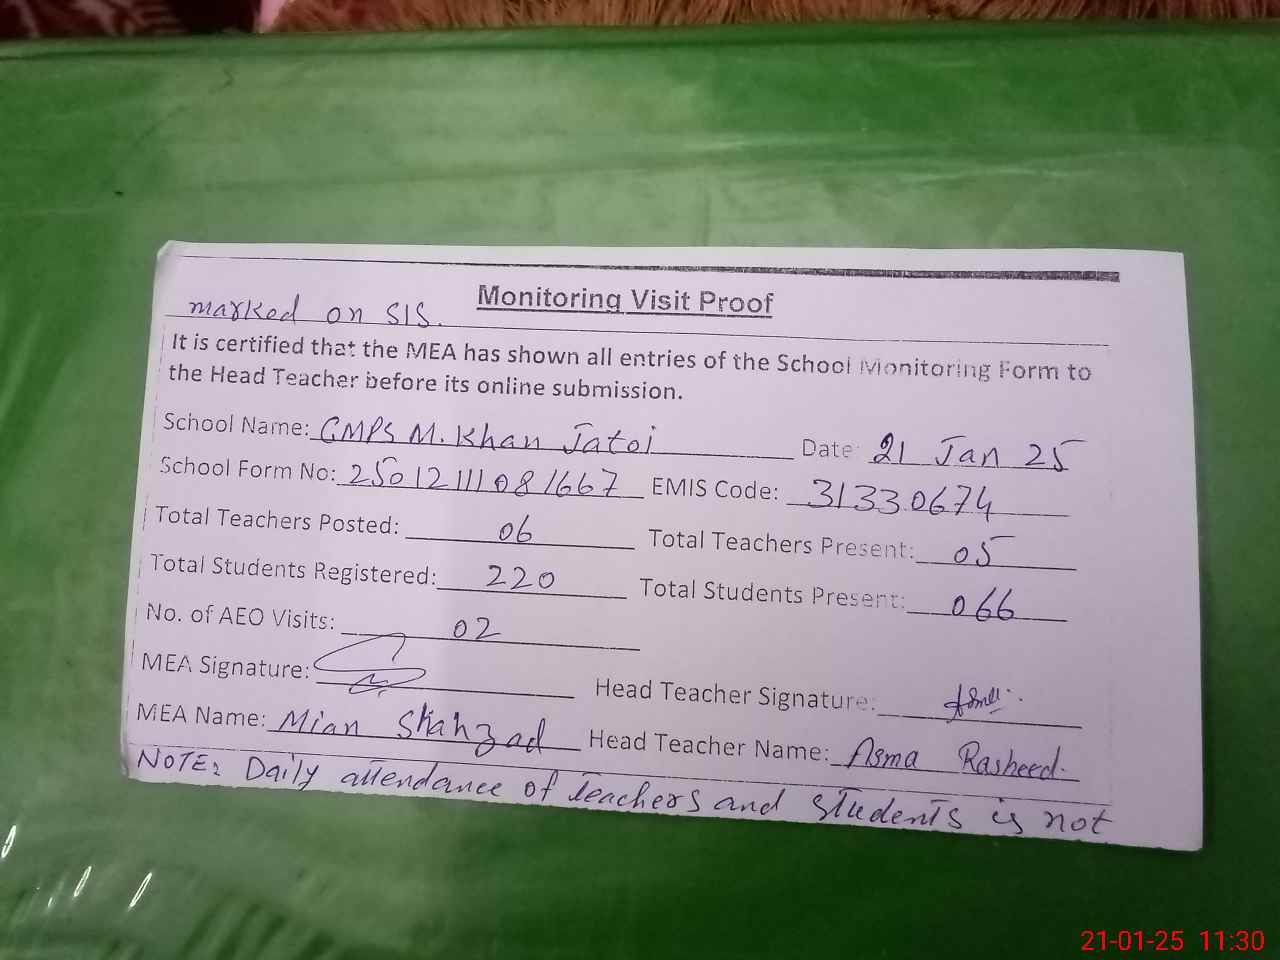 Monitoring Visit Proof
marked on SIS.
It is certified that the MEA has shown all entries of the School Monitoring Form to
the Head Teacher before its online submission.
School Name: GMPS M. Khan Jatoi Date: 21 Jan 25
School Form No: 2501211081667 EMIS Code: 31330674
Total Teachers Posted: 06 Total Teachers Present: 05
Total Students Registered: 220 Total Students Present: 066
No. of AEO Visits: 02
MEA Signature: Head Teacher Signature:
MEA Name: Mian Shahzad Head Teacher Name: Asma Rasheed.
NOTE: Daily attendance of teachers and students is not
21-01-25 11:30